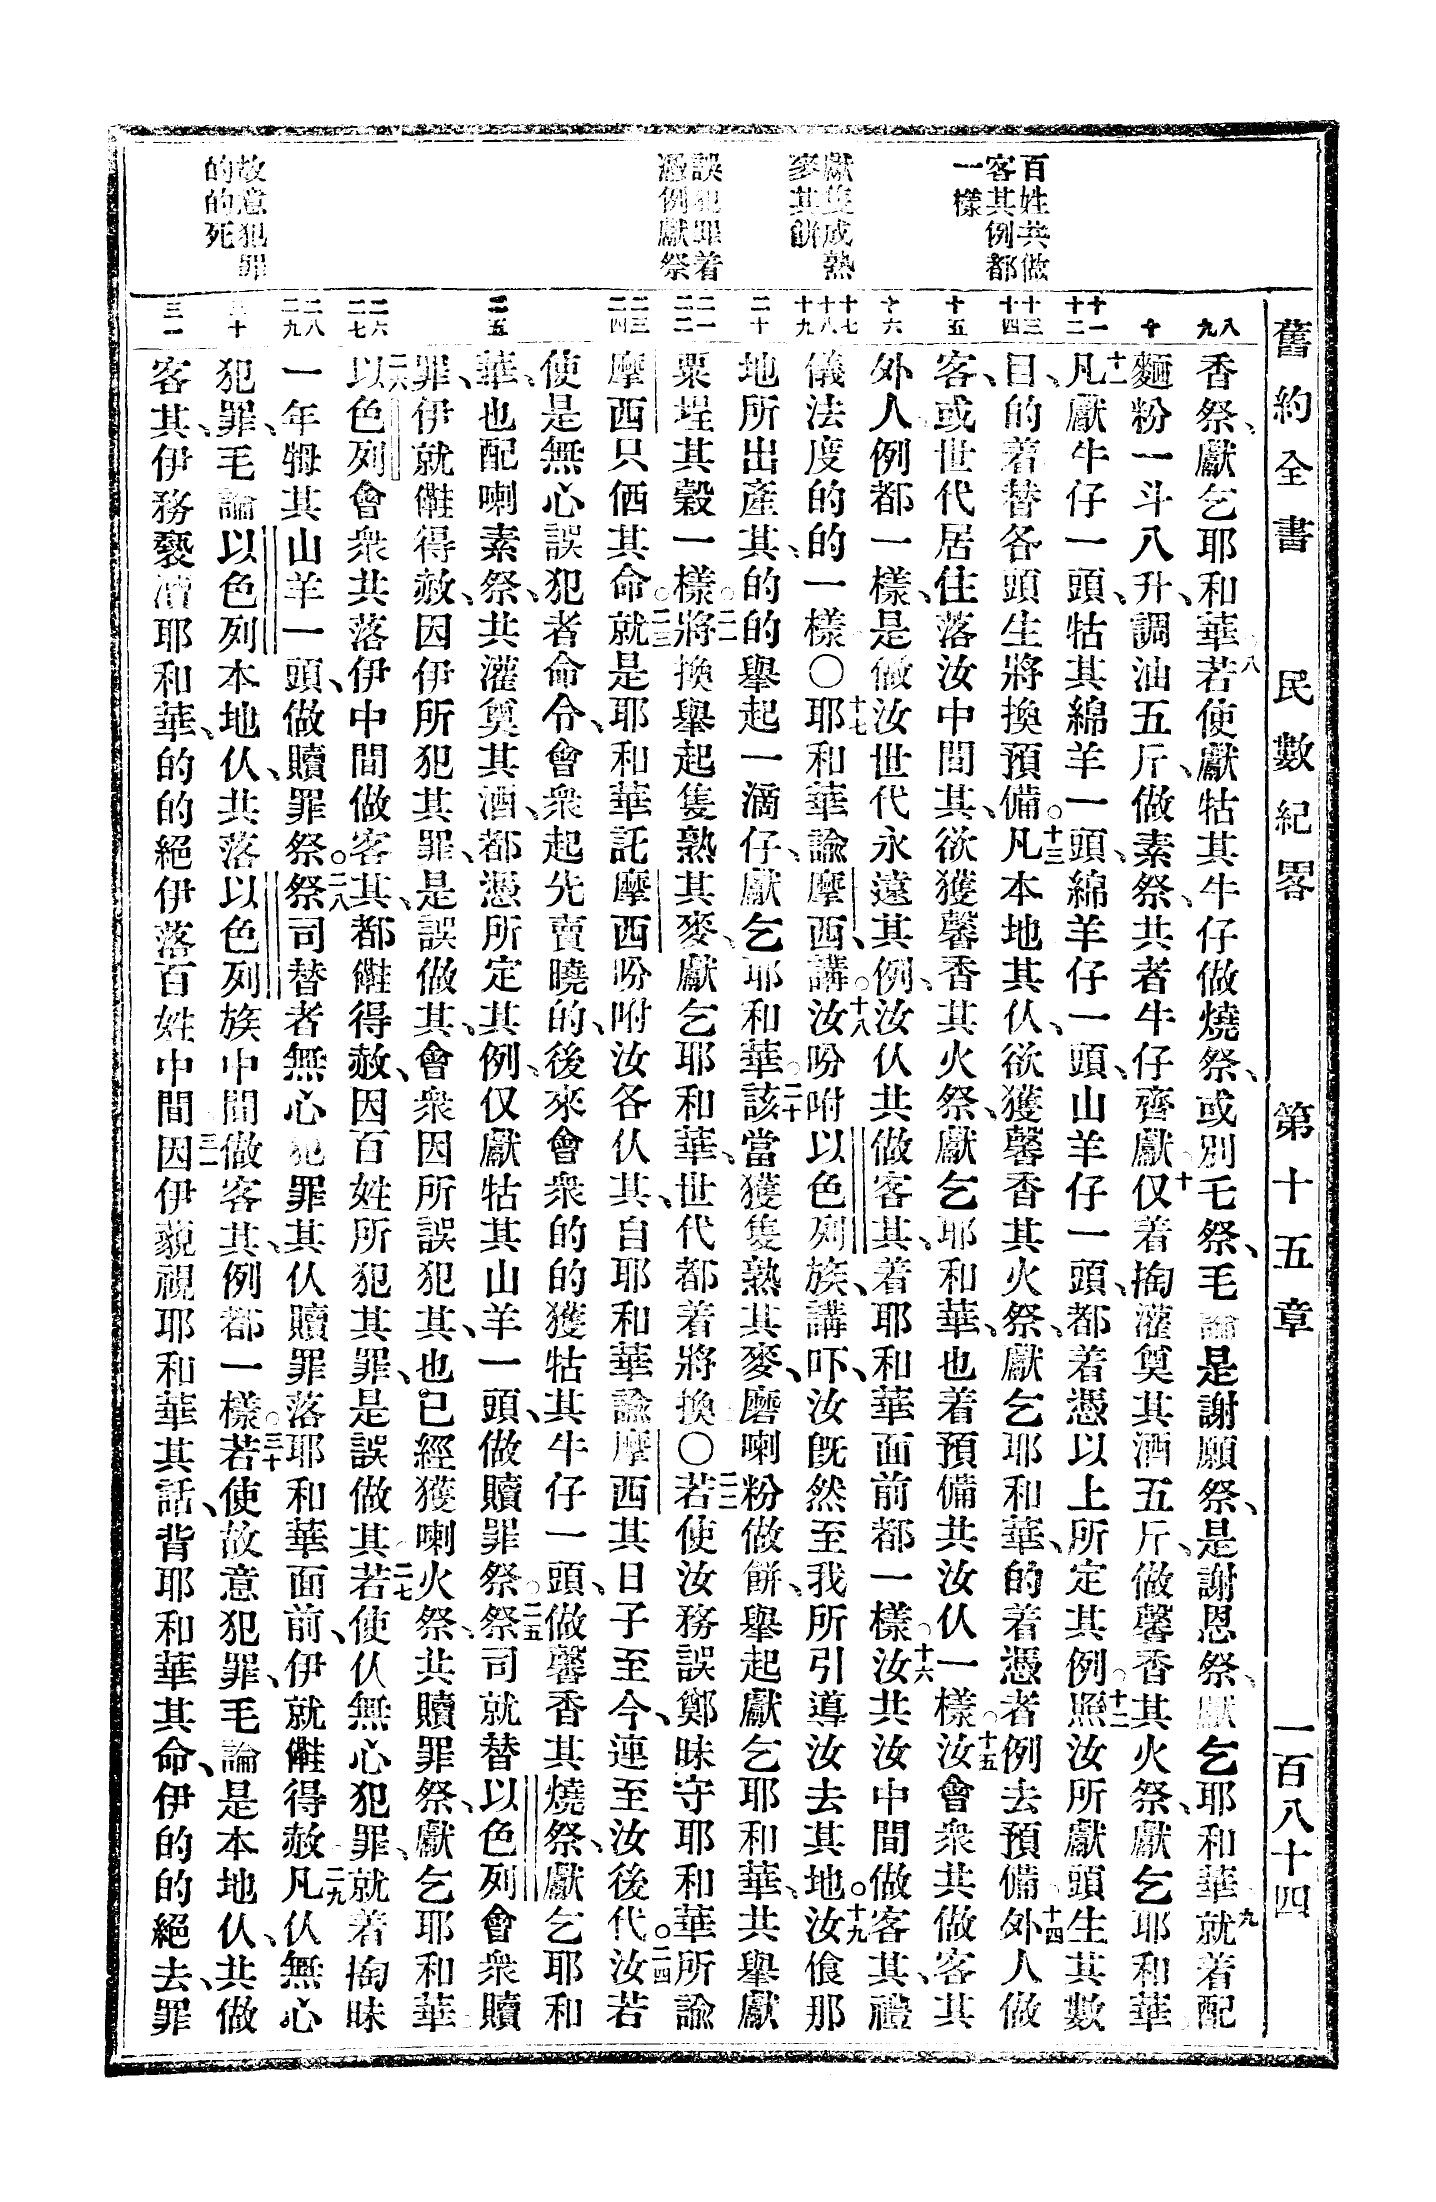 舊約全書 民數紀畧 第十五章 一百八十四
百姓共做
客其例都
一樣
獻隻成熟
麥其餅
誤犯罪着
憑例獻祭
故意犯罪
的的死
八
九
十
十一
十二
十三
十四
十五
十六
十七
十八
十九
二十
二一
二二
二三
二四
二五
二六
二七
二八
二九
三十
三一
香祭、獻乞耶和華。八若使獻牯其牛仔做燒祭、或別乇祭、毛論是謝願祭、是謝恩祭、獻乞耶和華、九就着配
麵粉一斗八升、調油五斤、做素祭、共者牛仔齊獻。十仅着掏灌奠其酒五斤、做馨香其火祭、獻乞耶和華。
十一凡獻牛仔一頭、牯其綿羊一頭、綿羊仔一頭、山羊仔一頭、都着憑以上所定其例。十二照汝所獻頭生其數
目、的着替各頭生將換預備。十三凡本地其仈、欲獲馨香其火祭、獻乞耶和華、的着憑者例去預備。十四外人做
客、或世代居住落汝中間其、欲獲馨香其火祭、獻乞耶和華、也着預備共汝仈一樣。十五汝會衆共做客其
外人例都一樣、是做汝世代永遠其例、汝仈共做客其、着耶和華面前都一樣。十六汝共汝中間做客其、禮
儀法度的的一樣〇十七耶和華諭摩西、講、十八汝吩咐以色列族、講吓、汝旣然至我所引導汝去其地。十九汝飡那
地所出產其、的的舉起一滴仔、獻乞耶和華。二十該當獲隻熟其麥、磨喇粉做餅、舉起獻乞耶和華、共舉獻
粟埕其榖一樣。二一將換舉起隻熟其麥、獻乞耶和華、世代都着將換〇二二若使汝務誤鄭昧守耶和華所諭
摩西只価其命。二三就是耶和華託摩西吩咐汝各仈其、自耶和華諭摩西其日子至今、連至汝後代。二四汝若
使是無心誤犯者命令、會衆起先賣曉的、後來會衆的的獲牯其牛仔一頭、做馨香其燒祭、獻乞耶和
華、也配喇素祭、共灌奠其酒、都憑所定其例、仅獻牯其山羊一頭、做贖罪祭。二五祭司就替以色列會衆贖
罪、伊就儺得赦、因伊所犯其罪、是誤做其、會衆因所誤犯其、也已經獲喇火祭、共贖罪祭、獻乞耶和華。
二六以色列會衆共落伊中間做客其、都儺得赦、因百姓所犯其罪、是誤做其。二七若使仈無心犯罪、就着掏昧
一年㹇其山羊一頭、做贖罪祭。二八祭司替者無心犯罪其仈贖罪落耶和華面前、伊就儺得赦。二九凡仈無心
犯罪、毛論以色列本地仈、共落以色列族中間做客其、例都一樣。三十若使故意犯罪、毛論是本地仈、共做
客其、伊務褻瀆耶和華、的的絕伊落百姓中間。三一因伊藐視耶和華其話、背耶和華其命、伊的的絕去、罪